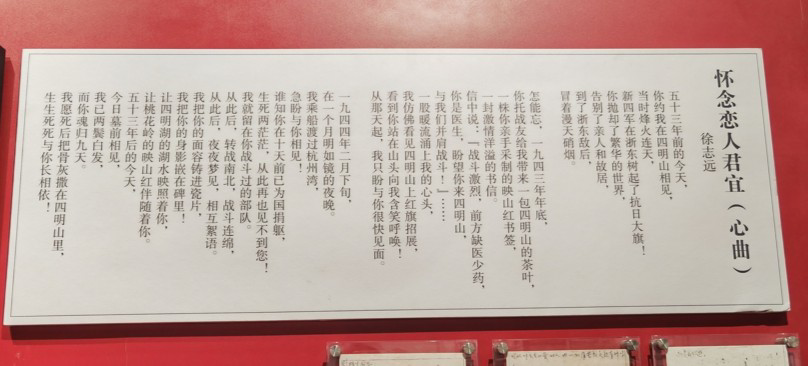 怀念恋人君宜（心曲）
徐志远
五十三年前的今天，
你约我在四明山相见，
当时烽火连天，
新四军在浙东树起了抗日大旗！
你抛却了繁华的世界，
告别了亲人和故居，
到了浙东敌后，
冒着漫天硝烟。
怎能忘，一九四三年年底，
你托战友给我带来一包四明山的茶叶，
一株你亲手采制的映山红书签，
一封激情洋溢的书信。
信中说：“战斗激烈，前方缺医少药，
你是医生，盼望你来四明山，
与我们并肩战斗！”……
一股暖流涌上我的心头，
我仿佛看见四明山上红旗招展，
看到你站在山头向我含笑呼唤！
从那天起，我只盼与你很快见面。
一九四四年二月下旬，
在一个月明如镜的夜晚。
我乘船渡过杭州湾，
急盼与你相见！
谁知你在十天前已为国捐躯，
生死两茫茫，从此再也见不到您！
我就留在你战斗过的部队。
从此后，转战南北，战斗连绵，
从此后，夜夜梦见，相互絮语。
我把你的面容铸进瓷片，
我把你的身影嵌在碑里！
让四明湖的湖水映照着你，
让桃花岭的映山红伴随着你。
五十三年后的今天，
今日墓前相见，
我已两鬓白发，
而你魂归九天。
我愿死后把骨灰撒在四明山里，
生生死死与你长相依！